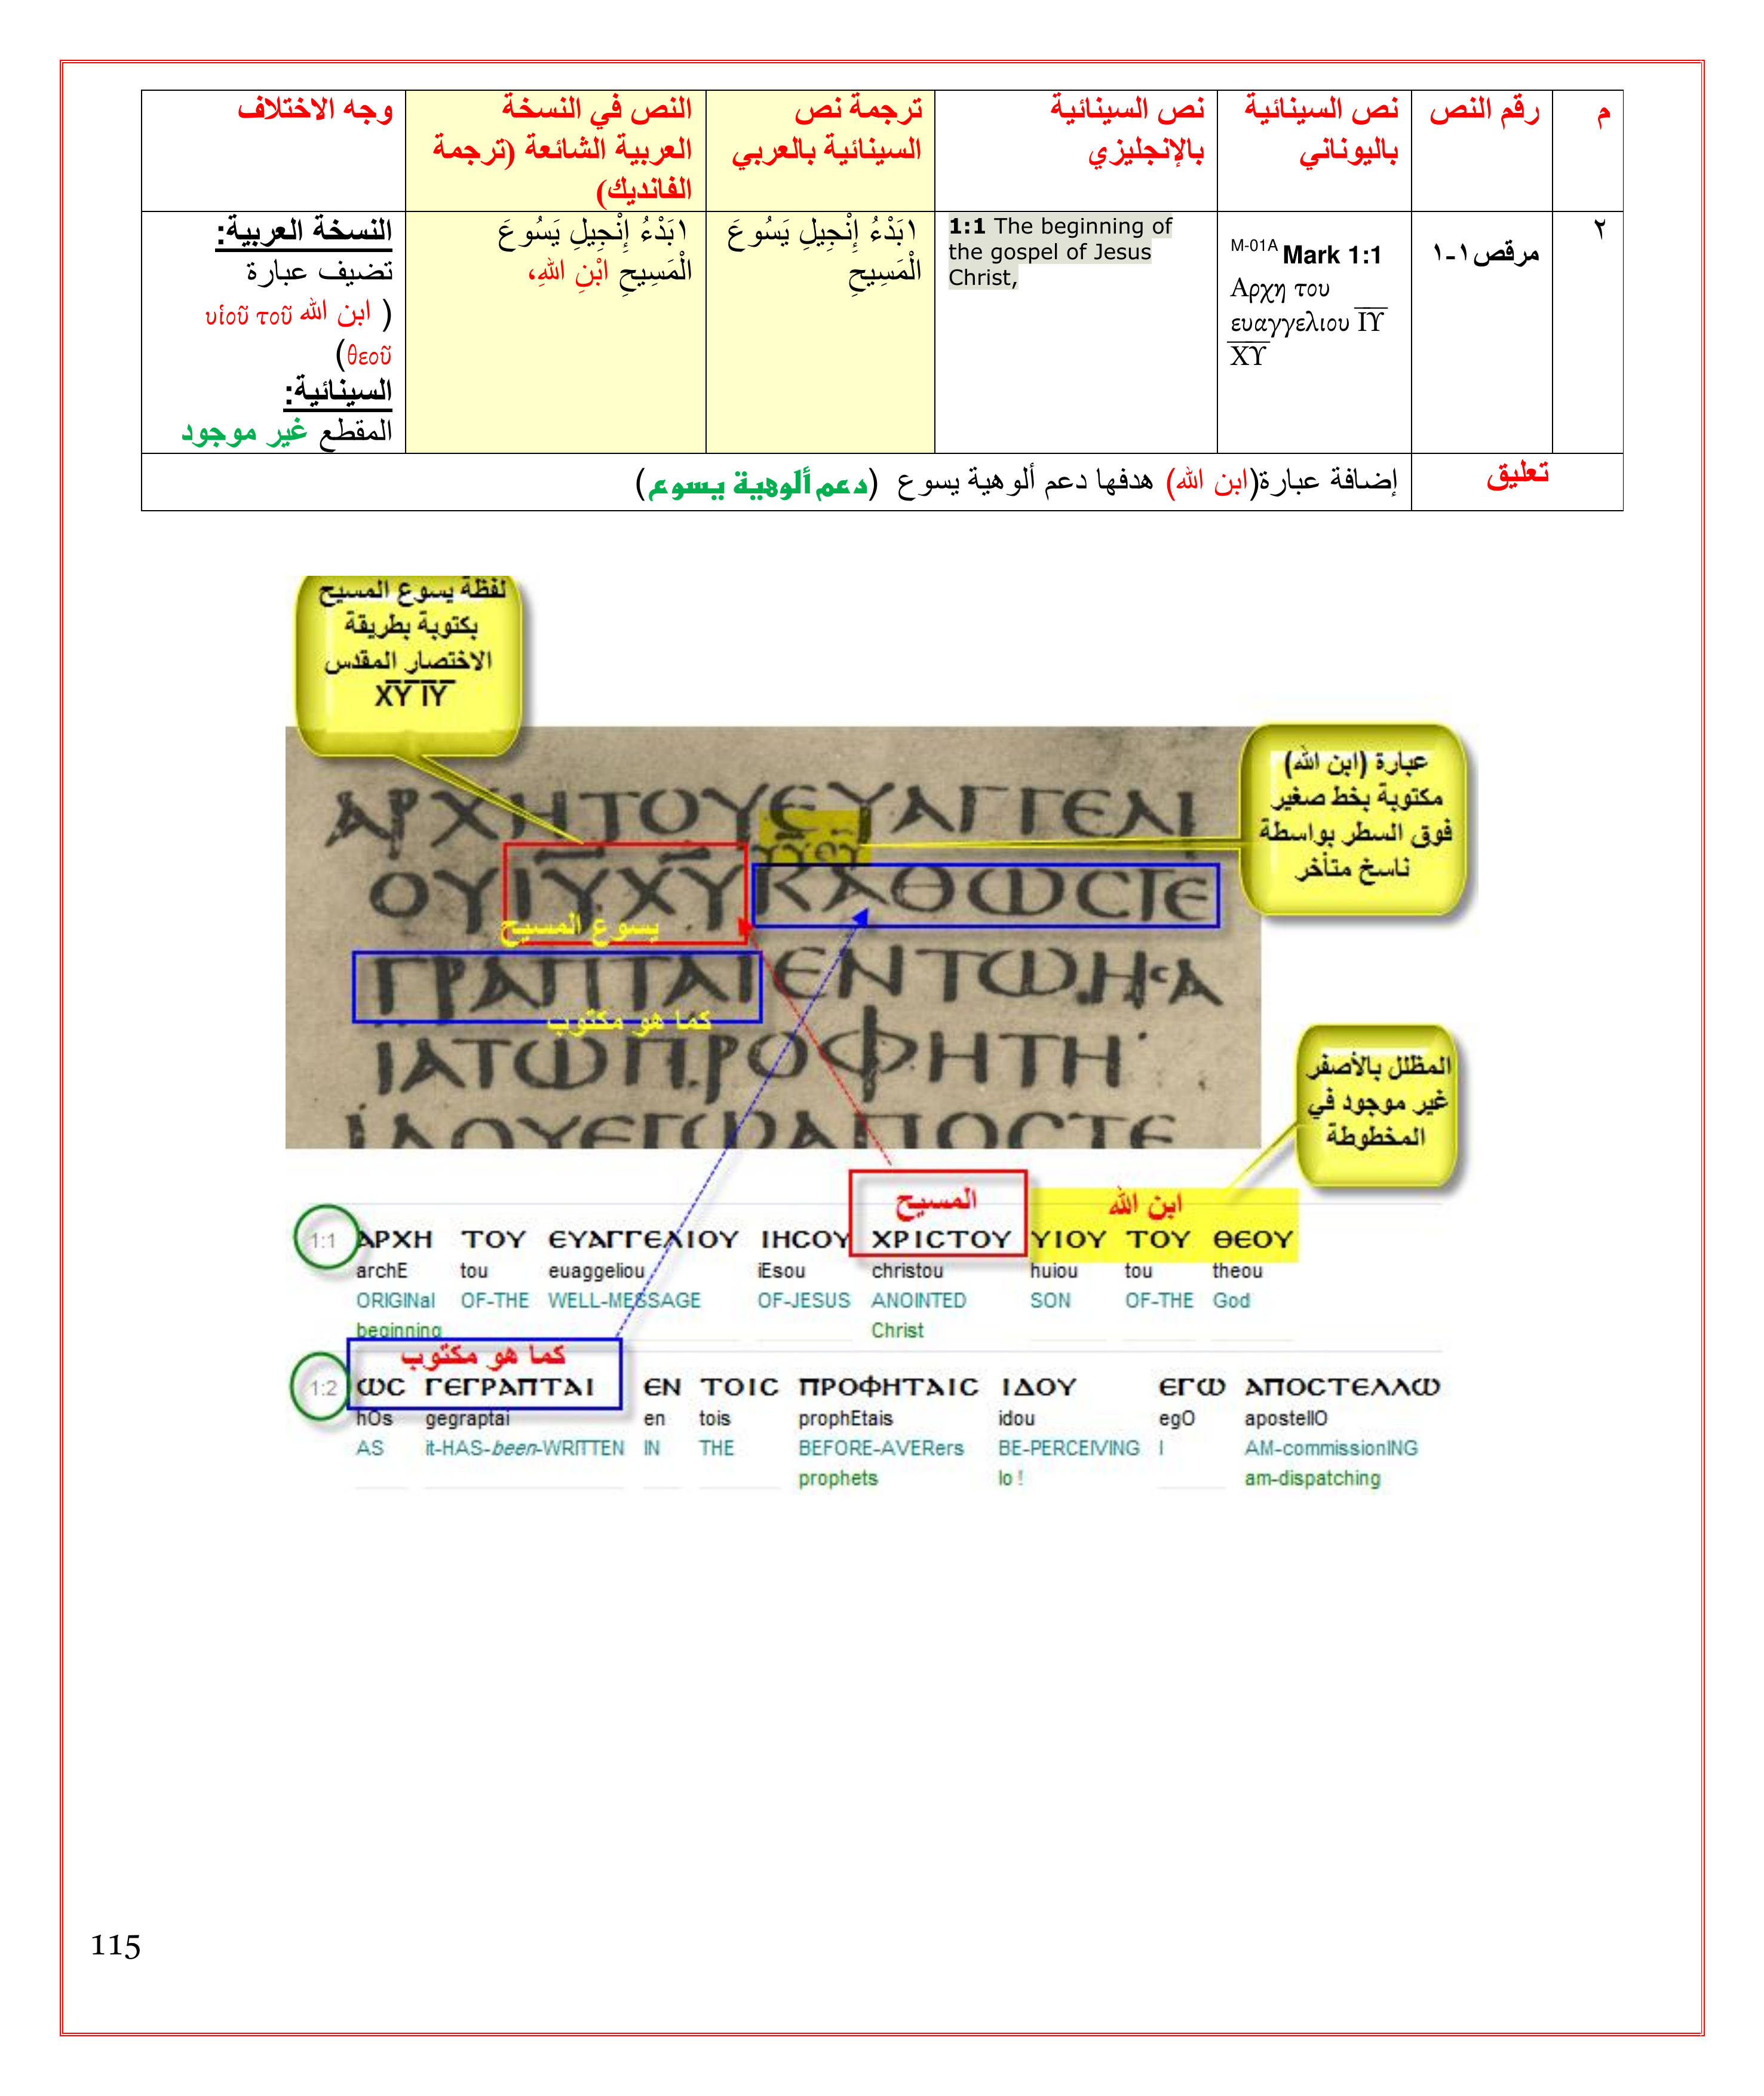 م
رقم النص
نص السينائية
باليوناني
نص السينائية
بالإنجليزي
ترجمة نص
السينائية بالعربي
النص في النسخة
العربية الشائعة (ترجمة
الفانديك)
وجه الاختلاف
٢
مرقص١-١
M-01A Mark 1:1
Αρχη του
ευαγγελιου ΙΥ
ΧΥ
1:1 The beginning of
the gospel of Jesus
Christ,
١بَدْءُ إِنْجِيلِ يَسُوعَ
الْمَسِيحِ
١بَدْءُ إِنْجِيلِ يَسُوعَ
الْمَسِيحِ ابْنِ اللهِ،
النسخة العربية:
تضيف عبارة
( ابن الله υἱοῦ τοῦ
θεοῦ)
السينائية:
المقطع غير موجود
تعليق
إضافة عبارة(ابن الله) هدفها دعم ألوهية يسوع (دعم ألوهية يسوع)
لفظة يسوع المسيح
بكتوبة بطريقة
الاختصار المقدس
XY IY
عبارة (ابن الله)
مكتوبة بخط صغير
فوق السطر بواسطة
ناسخ متأخر
ΑΡΧΗΤΟΥΕΥΑΓΓΕΛΙ
ΥΥΘΥ
ΟΥΙΥΧΥΚΑΘΩϹΓΕ
يسوع المسيح
ΓΡΑΠΤΑΙΕΝΤΩΗϹΑ
كما هو مكتوب
ΙΑΤΩΠΡΟΦΗΤΗ
ΙΔΟΥΕΓΩΑΠΟϹΤΕ
المظلل بالأصفر
غير موجود في
المخطوطة
المسيح
ابن الله
1:1 ΑΡΧΗ ΤΟΥ ΕΥΑΓΓΕΛΙΟΥ ΙΗϹΟΥ ΧΡΙϹΤΟΥ ΥΙΟΥ ΤΟΥ ΘΕΟΥ
archE tou euaggeliou iEsou christou huiou tou theou
ORIGINal OF-THE WELL-MESSAGE OF-JESUS ANOINTED SON OF-THE God
beginning Christ
كما هو مكتوب
1:2 ΩϹ ΓΕΓΡΑΠΤΑΙ ΕΝ ΤΟΙϹ ΠΡΟΦΗΤΑΙϹ ΙΔΟΥ ΕΓΩ ΑΠΟϹΤΕΛΛΩ
hOs gegraptai en tois prophEtais idou egO apostellO
AS it-HAS-been-WRITTEN IN THE BEFORE-AVERers BE-PERCEIVING I AM-commissionING
prophets lo ! am-dispatching
115